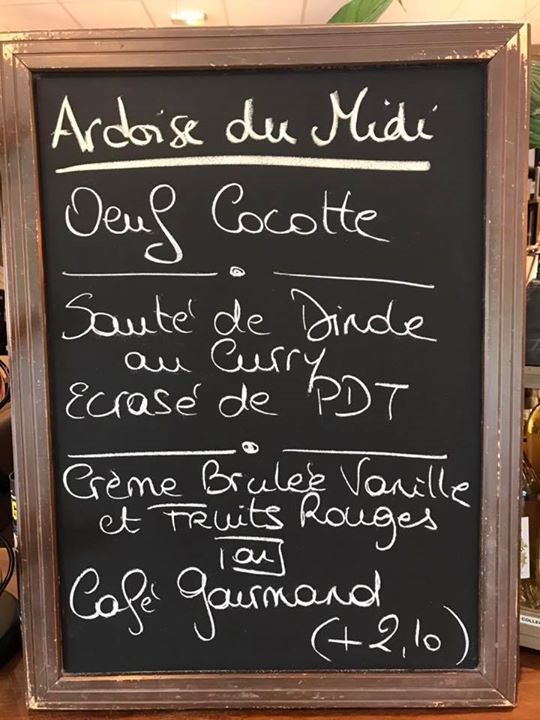 Ardoise du Midi
Oeuf Cocotte
Sauté de Dinde
au Curry
Ecrasé de PDT
Crème Brulée Vanille
et FRuits Rouges
ou
Café Gourmand
(+2,10)
COLLE